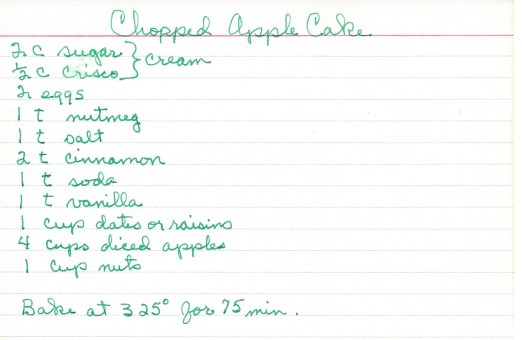 Chopped Apple Cake
2 c sugar } cream
½ c crisco
2 eggs
1 t nutmeg
1 t salt
2 t cinnamon
1 t soda
1 t vanilla
1 cup dates or raisins
4 cups diced apples
1 cup nuts
Bake at 325° for 75 min.